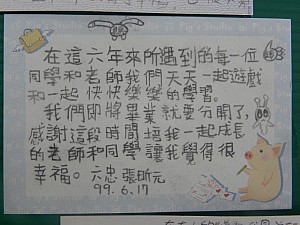 在這六年來所遇到的每一位
同學和老師我們天天一起遊戲
和一起快快樂樂的學習。
我們即將畢業就要分開了,
感謝這段時間 我一起成長
的老師和同學讓我覺得很
幸福。 六忠 張昕元
99.6.17